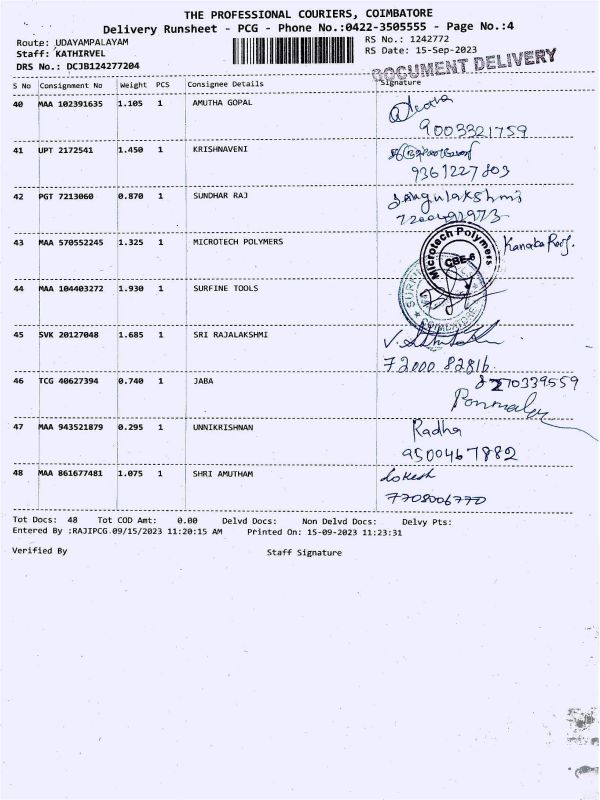 THE PROFESSIONAL COURIERS, COIMBATORE
Delivery Runsheet - PCG - Phone No.:0422-3505555 - Page No.:4
Route: UDAYAMPALAYAM RS No.: 1242772
Staff: KATHIRVEL RS Date: 15-Sep-2023
DRS No.: DCJB124277204
DOCUMENT DELIVERY
S No Consignment No Weight PCS Consignee Details Signature
40 MAA 102391635 1.105 1 AMUTHA GOPAL
9003321759
41 UPT 2172541 1.450 1 KRISHNAVENI
9361227803
42 PGT 7213060 0.870 1 SUNDHAR RAJ
43 MAA 570552245 1.325 1 MICROTECH POLYMERS
Microtech Polymers
CBE-6
44 MAA 104403272 1.930 1 SURFINE TOOLS
COIMBATORE
45 SVK 20127048 1.685 1 SRI RAJALAKSHMI
72000 82816
46 TCG 40627394 0.740 1 JABA
47 MAA 943521879 0.295 1 UNNIKRISHNAN Radha
9500467882
48 MAA 861677481 1.075 1 SHRI AMUTHAM Lokesh
7708006770
Tot Docs: 48 Tot COD Amt: 0.00 Delvd Docs: Non Delvd Docs: Delvy Pts:
Entered By :RAJIPCG 09/15/2023 11:20:15 AM Printed On: 15-09-2023 11:23:31
Verified By Staff Signature